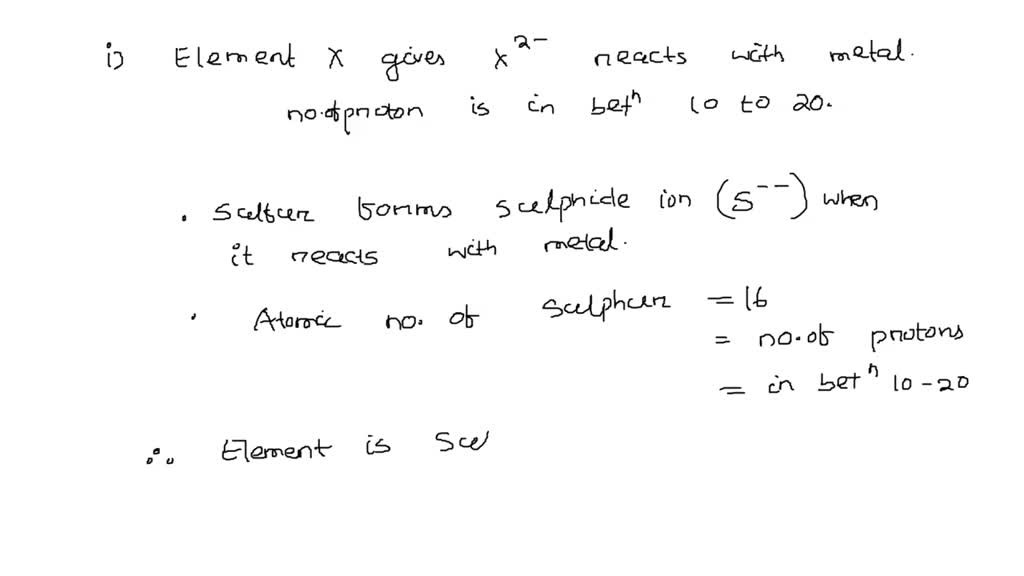 i) Element X gives X²⁻ reacts with metal.
no.of proton is in betⁿ 10 to 20.
. Sulfur forms sulphide ion (S⁻⁻) when
it reacts with metal.
. Atomic no. of sulphur = 16
= no.of protons
= in betⁿ 10-20
∴ Element is Sul